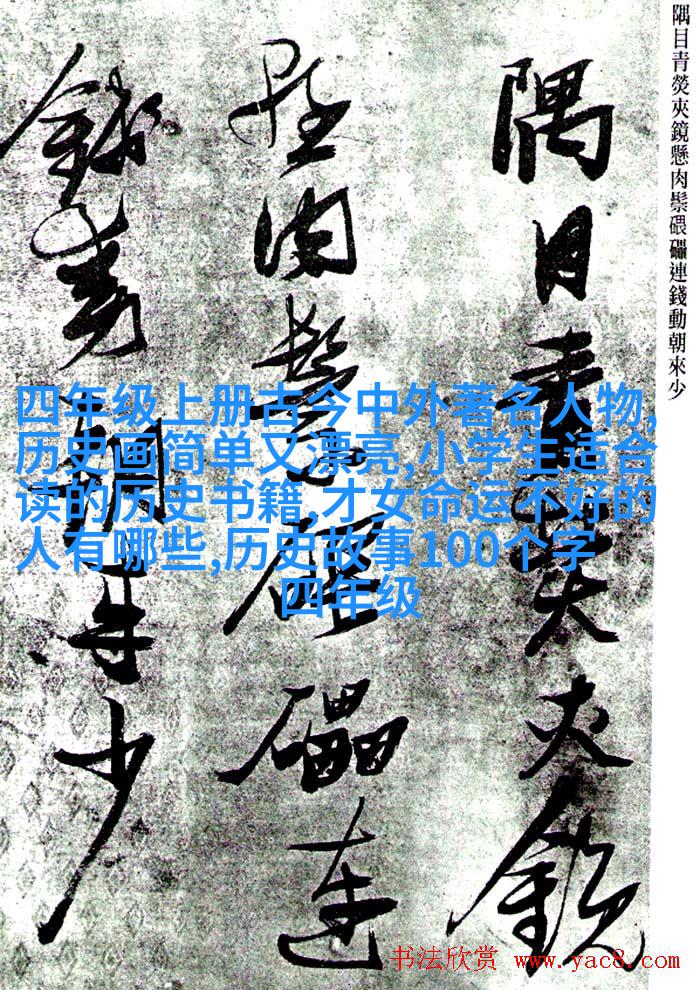 隅目青熒夾鏡懸肉鬃碨礧連錢動朝來少
隅目青熒夾鏡
懸肉鬃碨礧連
錢動朝來少
四年级上册古今中外著名人物,
历史画简单又漂亮,小学生适合
读的历史书籍,才女命运不好的
人有哪些,历史故事100个字
四年级
书法欣赏 www.yac8.com